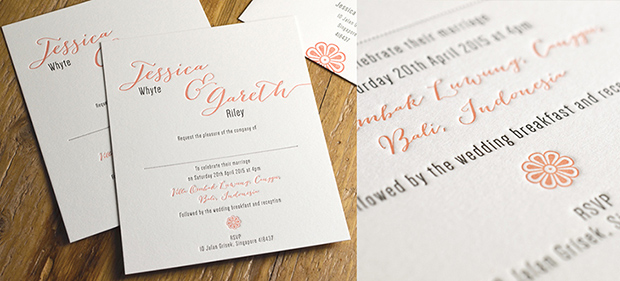 Jessica
Whyte
Jessica
Whyte
&
Gareth
Riley
Request the pleasure of the company of
To celebrate their marriage
on Saturday 20th April 2015 at 4pm
Villa Ombak Luwung, Canggu,
Bali, Indonesia
Followed by the wedding breakfast and reception
RSVP
10 Jalan Grisek, Singapore 418437
10 Jalan
Singapore
celebrate their marriage
20th April 2015 at 4pm
Ombak Luwung, Canggu,
Bali, Indonesia
Followed by the wedding breakfast and
RSVP
Jalan Grisek,